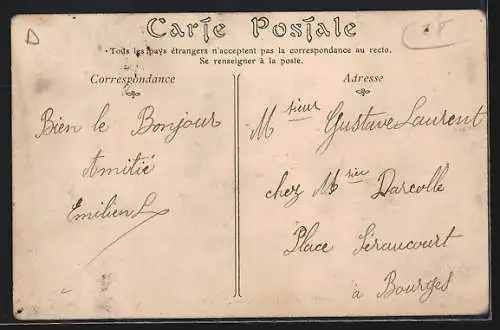 D
18
Carte Postale
• Tous les pays étrangers n'acceptent pas la correspondance au recto.
Se renseigner à la poste.
Correspondance
Bien le Bonjour
Amitié
Emilien L
Adresse
Msieur Gustave Laurent
chez Msieu Darcolle
Place Séraucourt
à Bourges